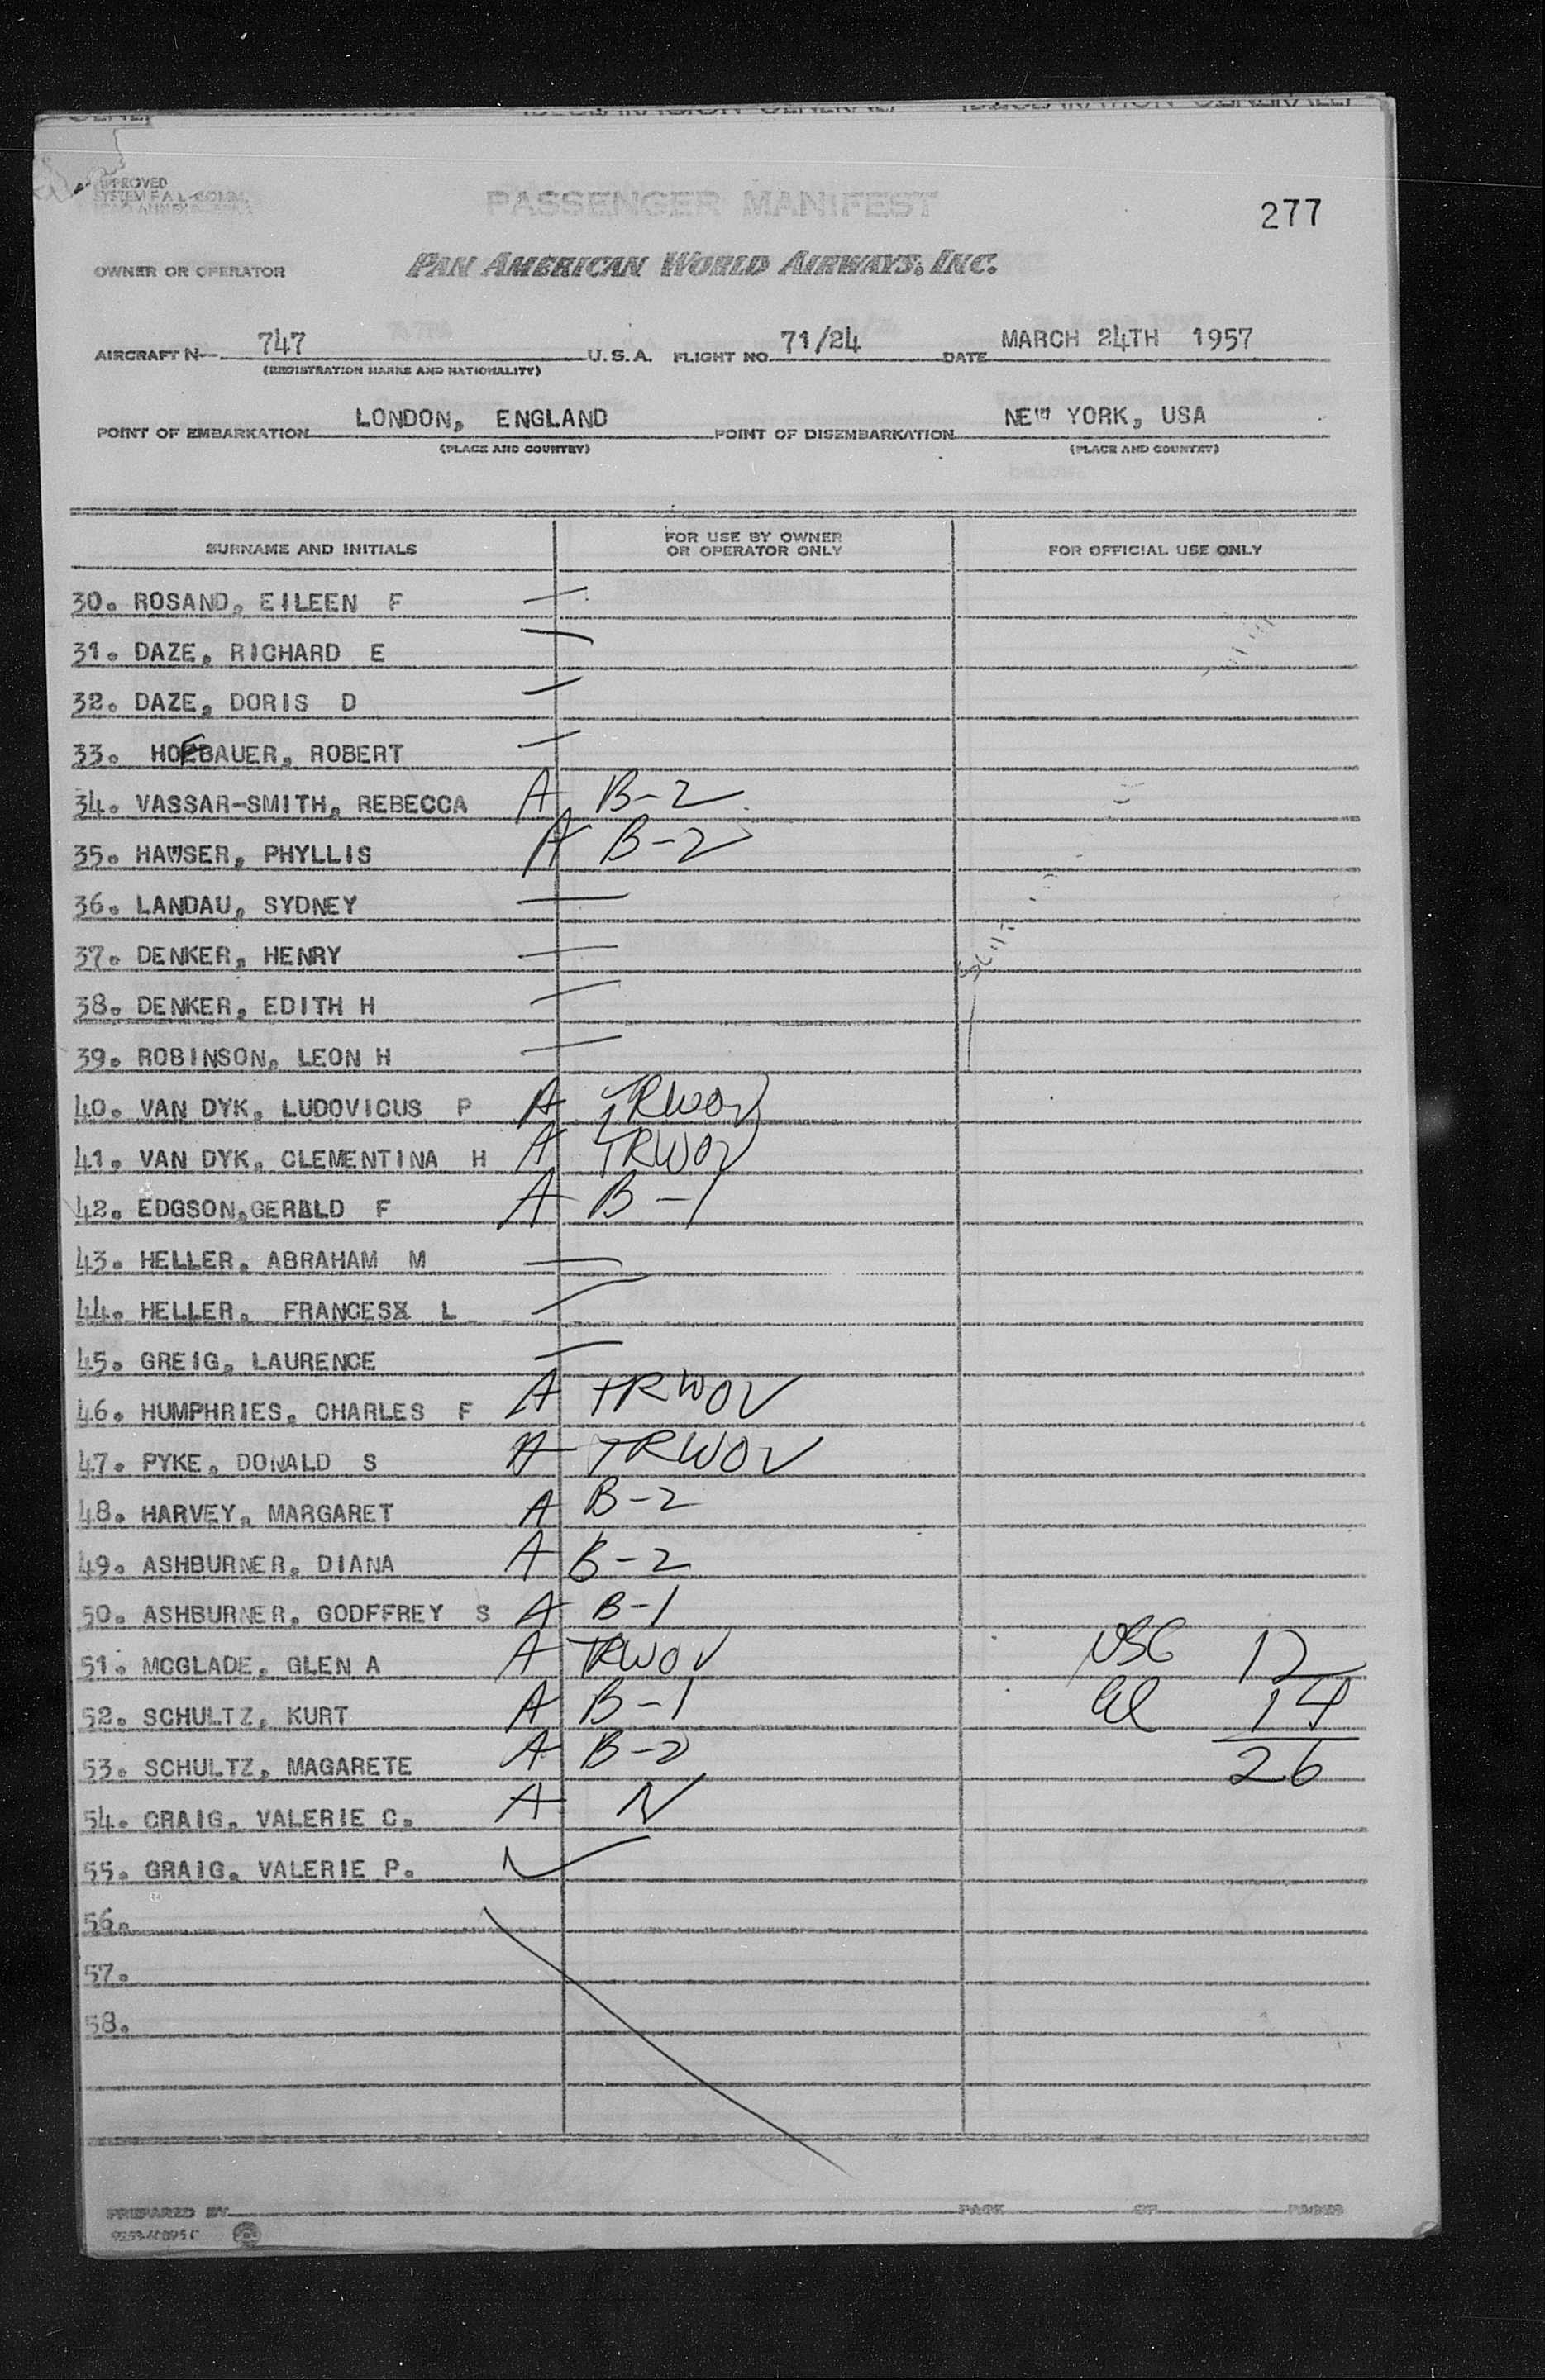 PASSENGER MANIFEST
277
OWNER OR OPERATOR PAN AMERICAN WORLD AIRWAYS, INC.
AIRCRAFT N- 747 U.S.A. FLIGHT NO. 71/24 DATE MARCH 24TH 1957
(REGISTRATION MARKS AND NATIONALITY)
POINT OF EMBARKATION LONDON, ENGLAND POINT OF DISEMBARKATION NEW YORK, USA
(PLACE AND COUNTRY) (PLACE AND COUNTRY)
SURNAME AND INITIALS FOR USE BY OWNER OR OPERATOR ONLY FOR OFFICIAL USE ONLY
30. ROSAND, EILEEN F —
31. DAZE, RICHARD E —
32. DAZE, DORIS D —
33. HOFBAUER, ROBERT —
34. VASSAR-SMITH, REBECCA A B-2
35. HAWSER, PHYLLIS A B-2
36. LANDAU, SYDNEY —
37. DENKER, HENRY —
38. DENKER, EDITH H —
39. ROBINSON, LEON H —
40. VAN DYK, LUDOVICUS P A TRWOV
41. VAN DYK, CLEMENTINA H A TRWOV
42. EDGSON,GERALD F A B-1
43. HELLER, ABRAHAM M —
44. HELLER, FRANCESX L —
45. GREIG, LAURENCE —
46. HUMPHRIES, CHARLES F A TRWOV
47. PYKE, DONALD S A TRWOV
48. HARVEY, MARGARET A B-2
49. ASHBURNER, DIANA A B-2
50. ASHBURNER, GODFFREY S A B-1
51. MCGLADE, GLEN A A TRWOV USC 12
52. SCHULTZ, KURT A B-1 al 14
53. SCHULTZ, MAGARETE A B-2 26
54. CRAIG, VALERIE C. A N
55. GRAIG, VALERIE P. ✓
56.
57.
58.
PREPARED BY PAGE OF PAGES